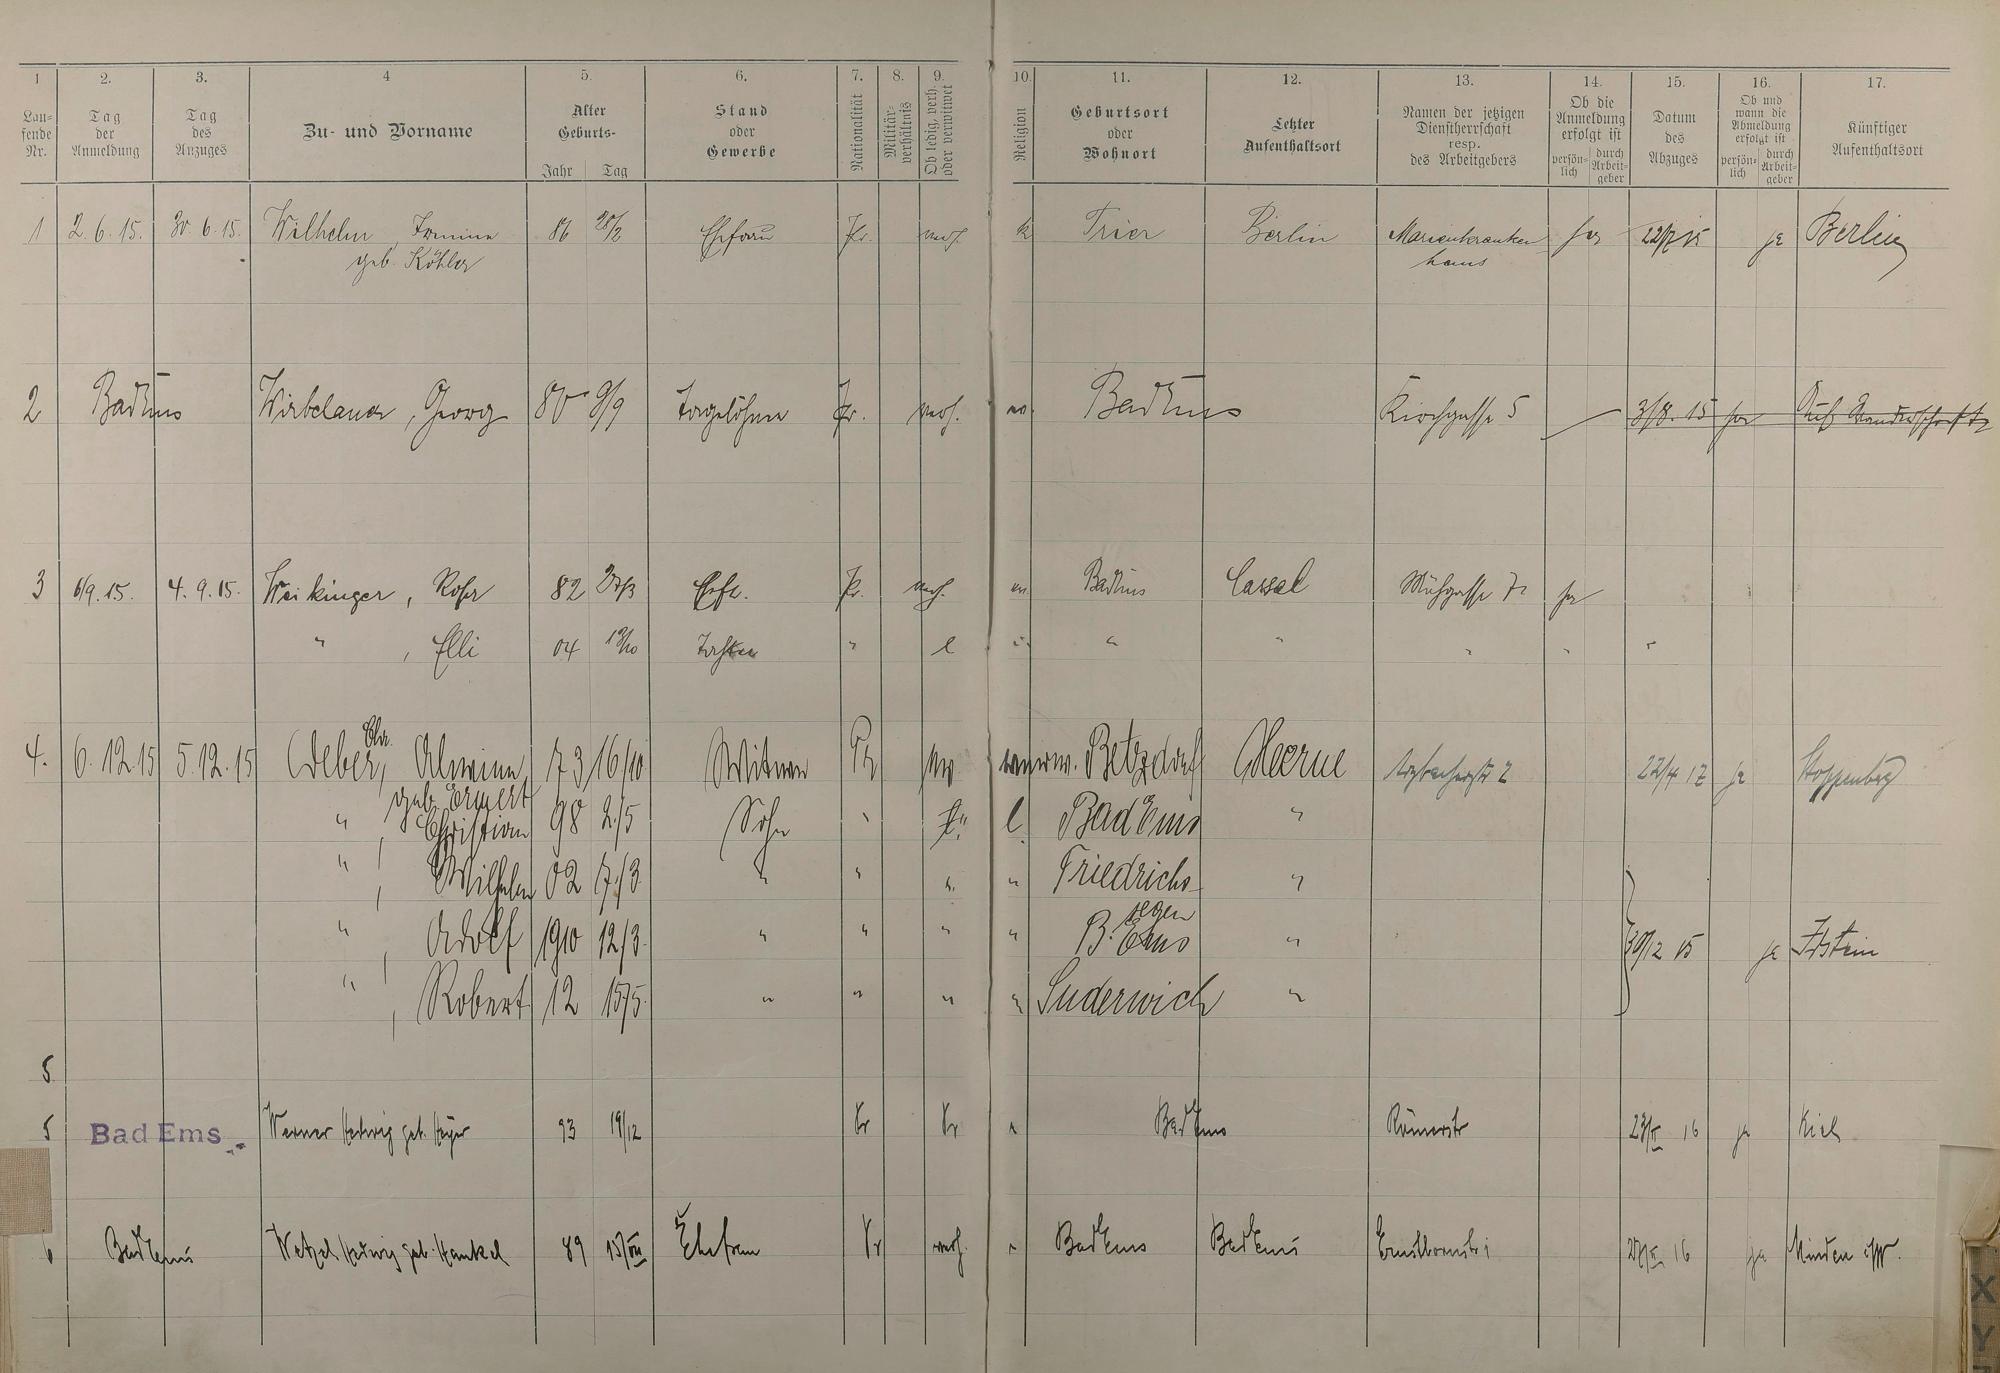 1 2. 3. 4 5. 6. 7. 8. 9. 10. 11. 12. 13. 14. 15. 16. 17.
Lau-fende Nr. Tag der Anmeldung Tag des Anzuges Zu- und Vorname Alter Geburts- Jahr Tag Stand oder Gewerbe Nationalität Militär-verhältnis Ob ledig, verh. oder verwitwet Religion Geburtsort oder Wohnort Letzter Aufenthaltsort Namen der jetzigen Dienstherrschaft resp. des Arbeitgebers Ob die Anmeldung erfolgt ist persön-lich durch Arbeit-geber Datum des Abzuges Ob und wann die Abmeldung erfolgt ist persön-lich durch Arbeit-geber Künftiger Aufenthaltsort
1 2. 6. 15. 30. 6. 15. Wilhelm, Irmina 86 28/2 Ehefrau Pr. verh. k Trier Berlin Marienkranken ja 22/7 15 ja Berlin
geb. Köhler haus
2 Bad Ems Wirbelauer, Georg 80 9/9 Tagelöhner Pr. verh. ev. Bad Ems Kirchgasse 5 3/8. 15 ja Auf Wanderschaft
3 6/9. 15. 4. 9. 15. Weikinger, Rosa 82 Ehefr. Pr. verh. ev. Bad Ems Cassel ja
" , Elli 04 13/10 Tochter " l " " " " " "
4. 6. 12. 15 5. 12. 15 Weber, Chr. Alwine 73 16/10 Witwe Pr Betzdorf Herne 22/4 17 ja Stoppenberg
geb. Ermert
" , Christian 98 2/5 Sohn " l. Bad Ems "
" , Wilhelm 02 7/3 " " " " Friedrichs- "
segen
" , Adolf 1910 12/3. " " " " B. Ems " 30/12 15 ja Idstein
" , Robert 12 15/5. " " " " Suderwich "
5
5 Bad Ems Werner Hedwig geb. 93 19/12 Pr Bad Ems Römerstr 16 ja Kiel
6 Bad Ems Wetzel Hedwig geb. Henkel 89 15/VIII Ehefrau Pr verh. Bad Ems Bad Ems 16 ja Minden i/W.
X
Y